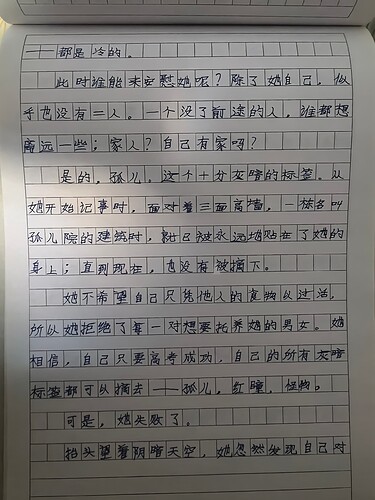 ——都是冷的。
此时谁能来安慰她呢？除了她自己，似
乎也没有二人。一个没了前途的人，谁都想
离远一些；家人？自己有家吗？
是的，孤儿。这个十分灰暗的标签。从
她开始记事时，面对着三面高墙，一栋名叫
孤儿院的建筑时，就已被永远地贴在了她的
身上；直到现在，也没有被摘下。
她不希望自己只凭他人的食物以过活，
所以她拒绝了每一对想要托养她的男女。她
相信，自己只要高考成功，自己的所有灰暗
标签都可以摘去——孤儿。红瞳。怪物。
可是，她失败了。
抬头望着阴暗天空，她忽然发现自己对